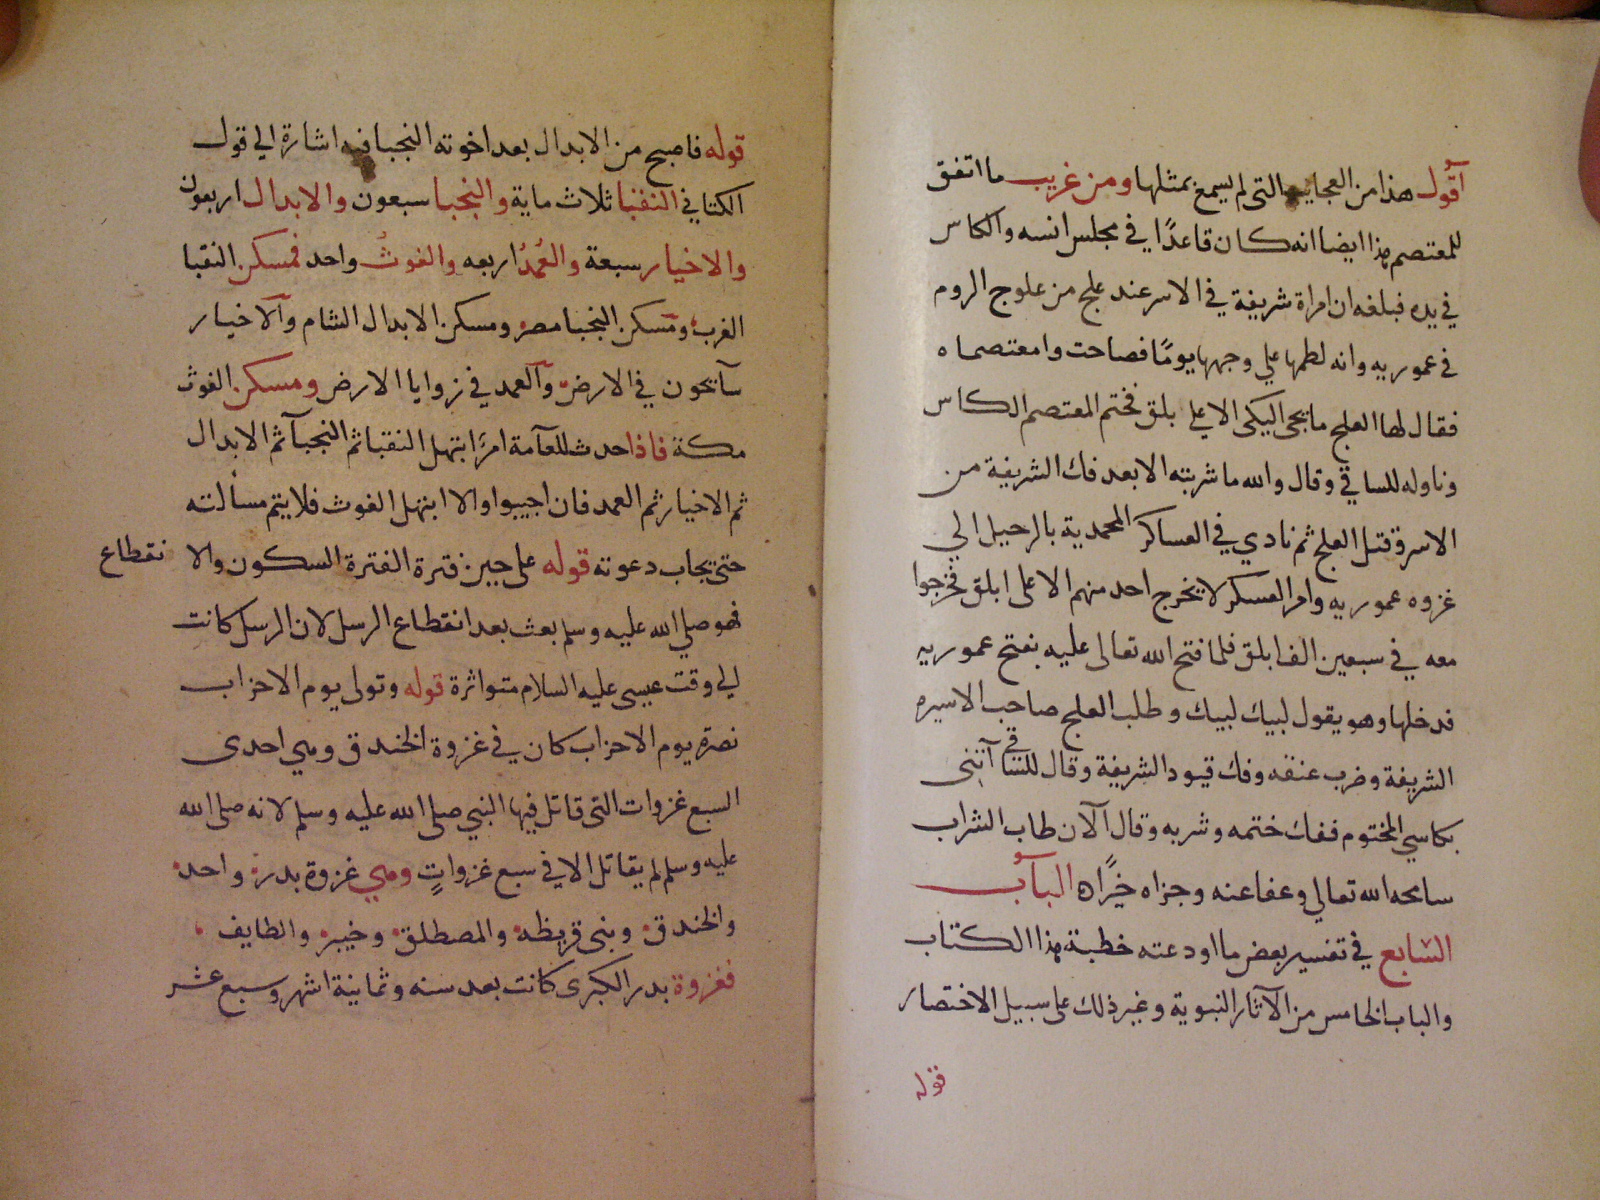 آقول هذا من العجايب التى لم يسمع بمثلها ومن غريب ما اتفق
للمعتصم هذا ايضا انه كان قاعدًا في مجلس انسه والكاس
في يده فبلغه ان امراة شريفة في الاسر عند علج من علوج الروم
في عموريه وانه لطمها علي وجهها يومًا فصاحت وامعتصماه
فقال لها العلج ما يجى اليكى الا علي بلق فختم المعتصم الكاس
وناوله للساقي وقال والله ما شربته الا بعد فك الشريفة من
الاسر وقتل العلج ثم نادي في العساكر المحمدية بالرحيل الي
غزوه عموريه وامر العسكر لا يخرج احد منهم الا على ابلق فخرجوا
معه في سبعين الف ابلق فلما فتح الله تعالى عليه بفتح عموريه
فدخلها وهو يقول لبيك لبيك وطلب العلج صاحب الاسيره
الشريفة وضرب عنقه وفك قيود الشريفة وقال للساقي آتنى
بكاسي المختوم ففك ختمه وشربه وقال آلآن طاب الشراب
سامحه الله تعالي وعفا عنه وجزاه خيرًا ه البآب
السّابع في تفسير بعض ما اودعته خطبة هذا الكتاب
والباب الخامس من الآثار النبوية وغير ذلك على سبيل الاختصار
قوله
قوله فاصبح من الابدال بعد اخوته النجبا فيه اشارة الي قول
الكتاني النقبا ثلاث ماية والنجبا سبعون والابدال اربعون
والاخيار سبعة والعُمدُ اربعه والغوثُ واحد فمسكن النقبا
الغرب ومسكن النجبا مصر ومسكن الابدال الشام وآلاخيار
سآيحون في الارض وآلعمد في زوايا الارض ومسكن الغوث
مكة فاذا حدث للعآمة امرًا ابتهل النقبا ثم النجبآ ثم الابدال
ثم الاخيار ثم العمد فان اجيبوا والا ابتهل الغوث فلا يتم مسألته
حتى يجاب دعوته قوله على حين فترة الفترة السكون والا نقطاع
فهو صلي الله عليه وسلم بعث بعد انقطاع الرسل لان الرسل كانت
الي وقت عيسى عليه السلام متواثرة قوله وتولى يوم الاحزاب
نصرة يوم الاحزاب كان في غزوة الخندق وهي احدى
السبع غزوات التى قاتل فيها النبي صلى الله عليه وسلم لانه صلى الله
عليه وسلم لم يقاتل الا في سبع غزواتٍ وهي غزوة بدر واحد
والخندق وبنى قريظه والمصطلق وخيبر والطايف
فغزوة بدر الكبرى كانت بعد سنه وثمانية اشهر وسبع عشر